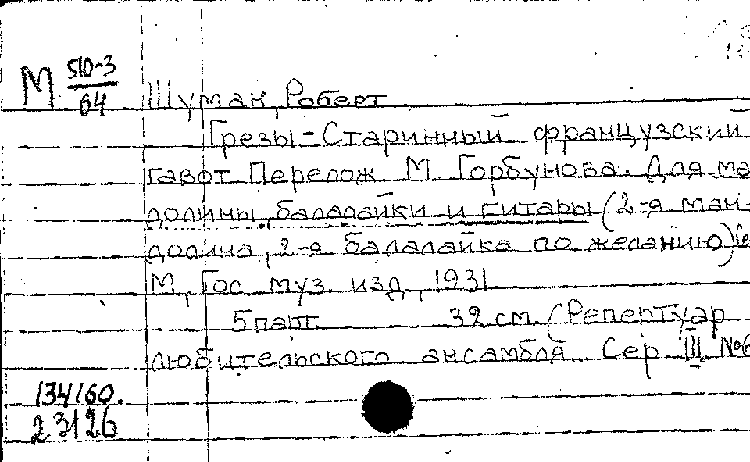 М 510-3
64
Шуман, Роберт
Грезы - Старинный французский
гавот. Перелож. М. Горбунова. Для ма
долины, балалайки и гитары (2-я ман-
долина, 2-я балалайка по желанию)
М., Гос. муз. изд., 1931
5 парт. 32 см. (Репертуар
любительского ансамбля. Сер. III №6
134160.
23126